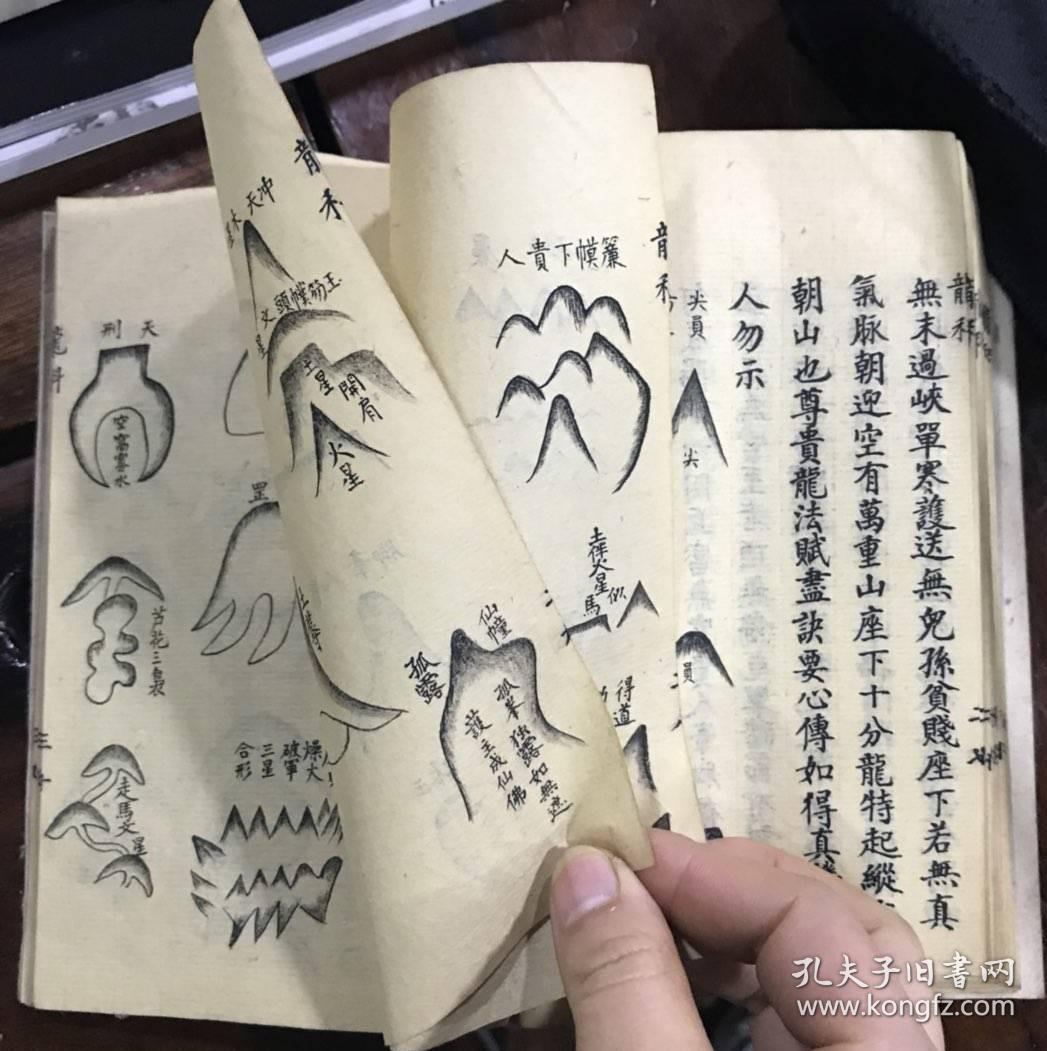 龍科
無末過峽單寒護送無兒孫貧賤座下若無真
氣脉朝迎空有萬重山座下十分龍特起縱
朝山也尊貴龍法賦盡訣要心傳如得真
人勿示
尖員
尖
員
龍科
簾幙下貴人
土筆火星
似馬
得道
龍科
冲天木星
玉笏幞頭
土星開肩
火星
仙幢
孤峯独露如無遮
護主成仙佛
孤露
罡
燥火
破軍
三星
合形
天刑
空窩
芦花三裊
走馬文星
孔夫子旧書网
www.kongfz.com